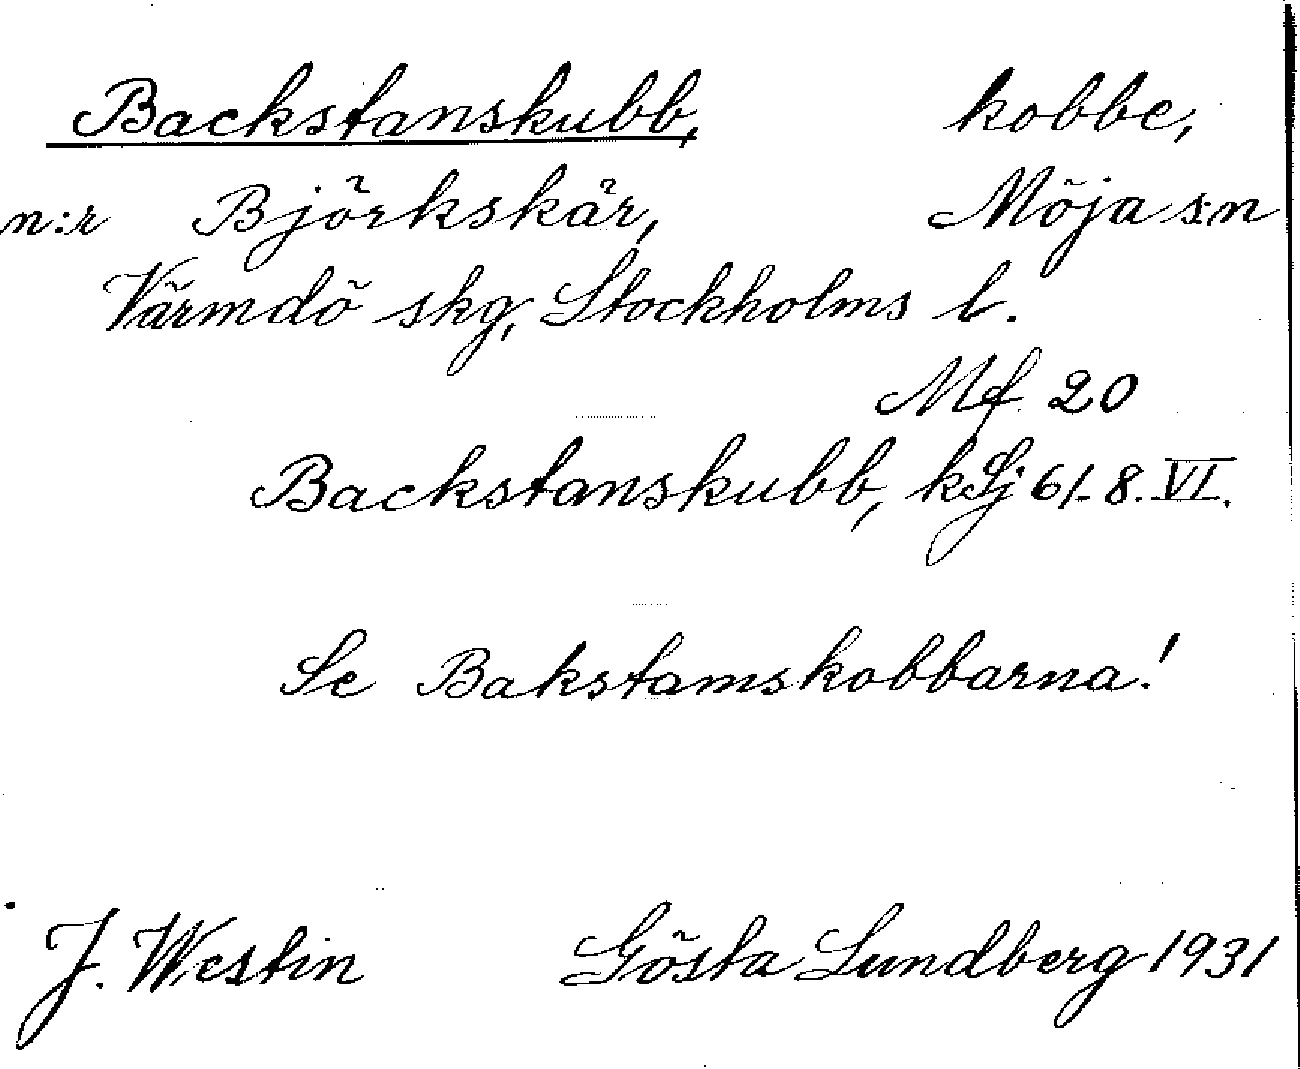 Backstanskubb, kobbe,
n:r Björkskär, Möja s:n
Värmdö skg, Stockholms l.
Mf. 20
Backstanskubb, kSj 61-8.VI.
Se Bakstamskobbarna!
J. Westin Gösta Lundberg 1931